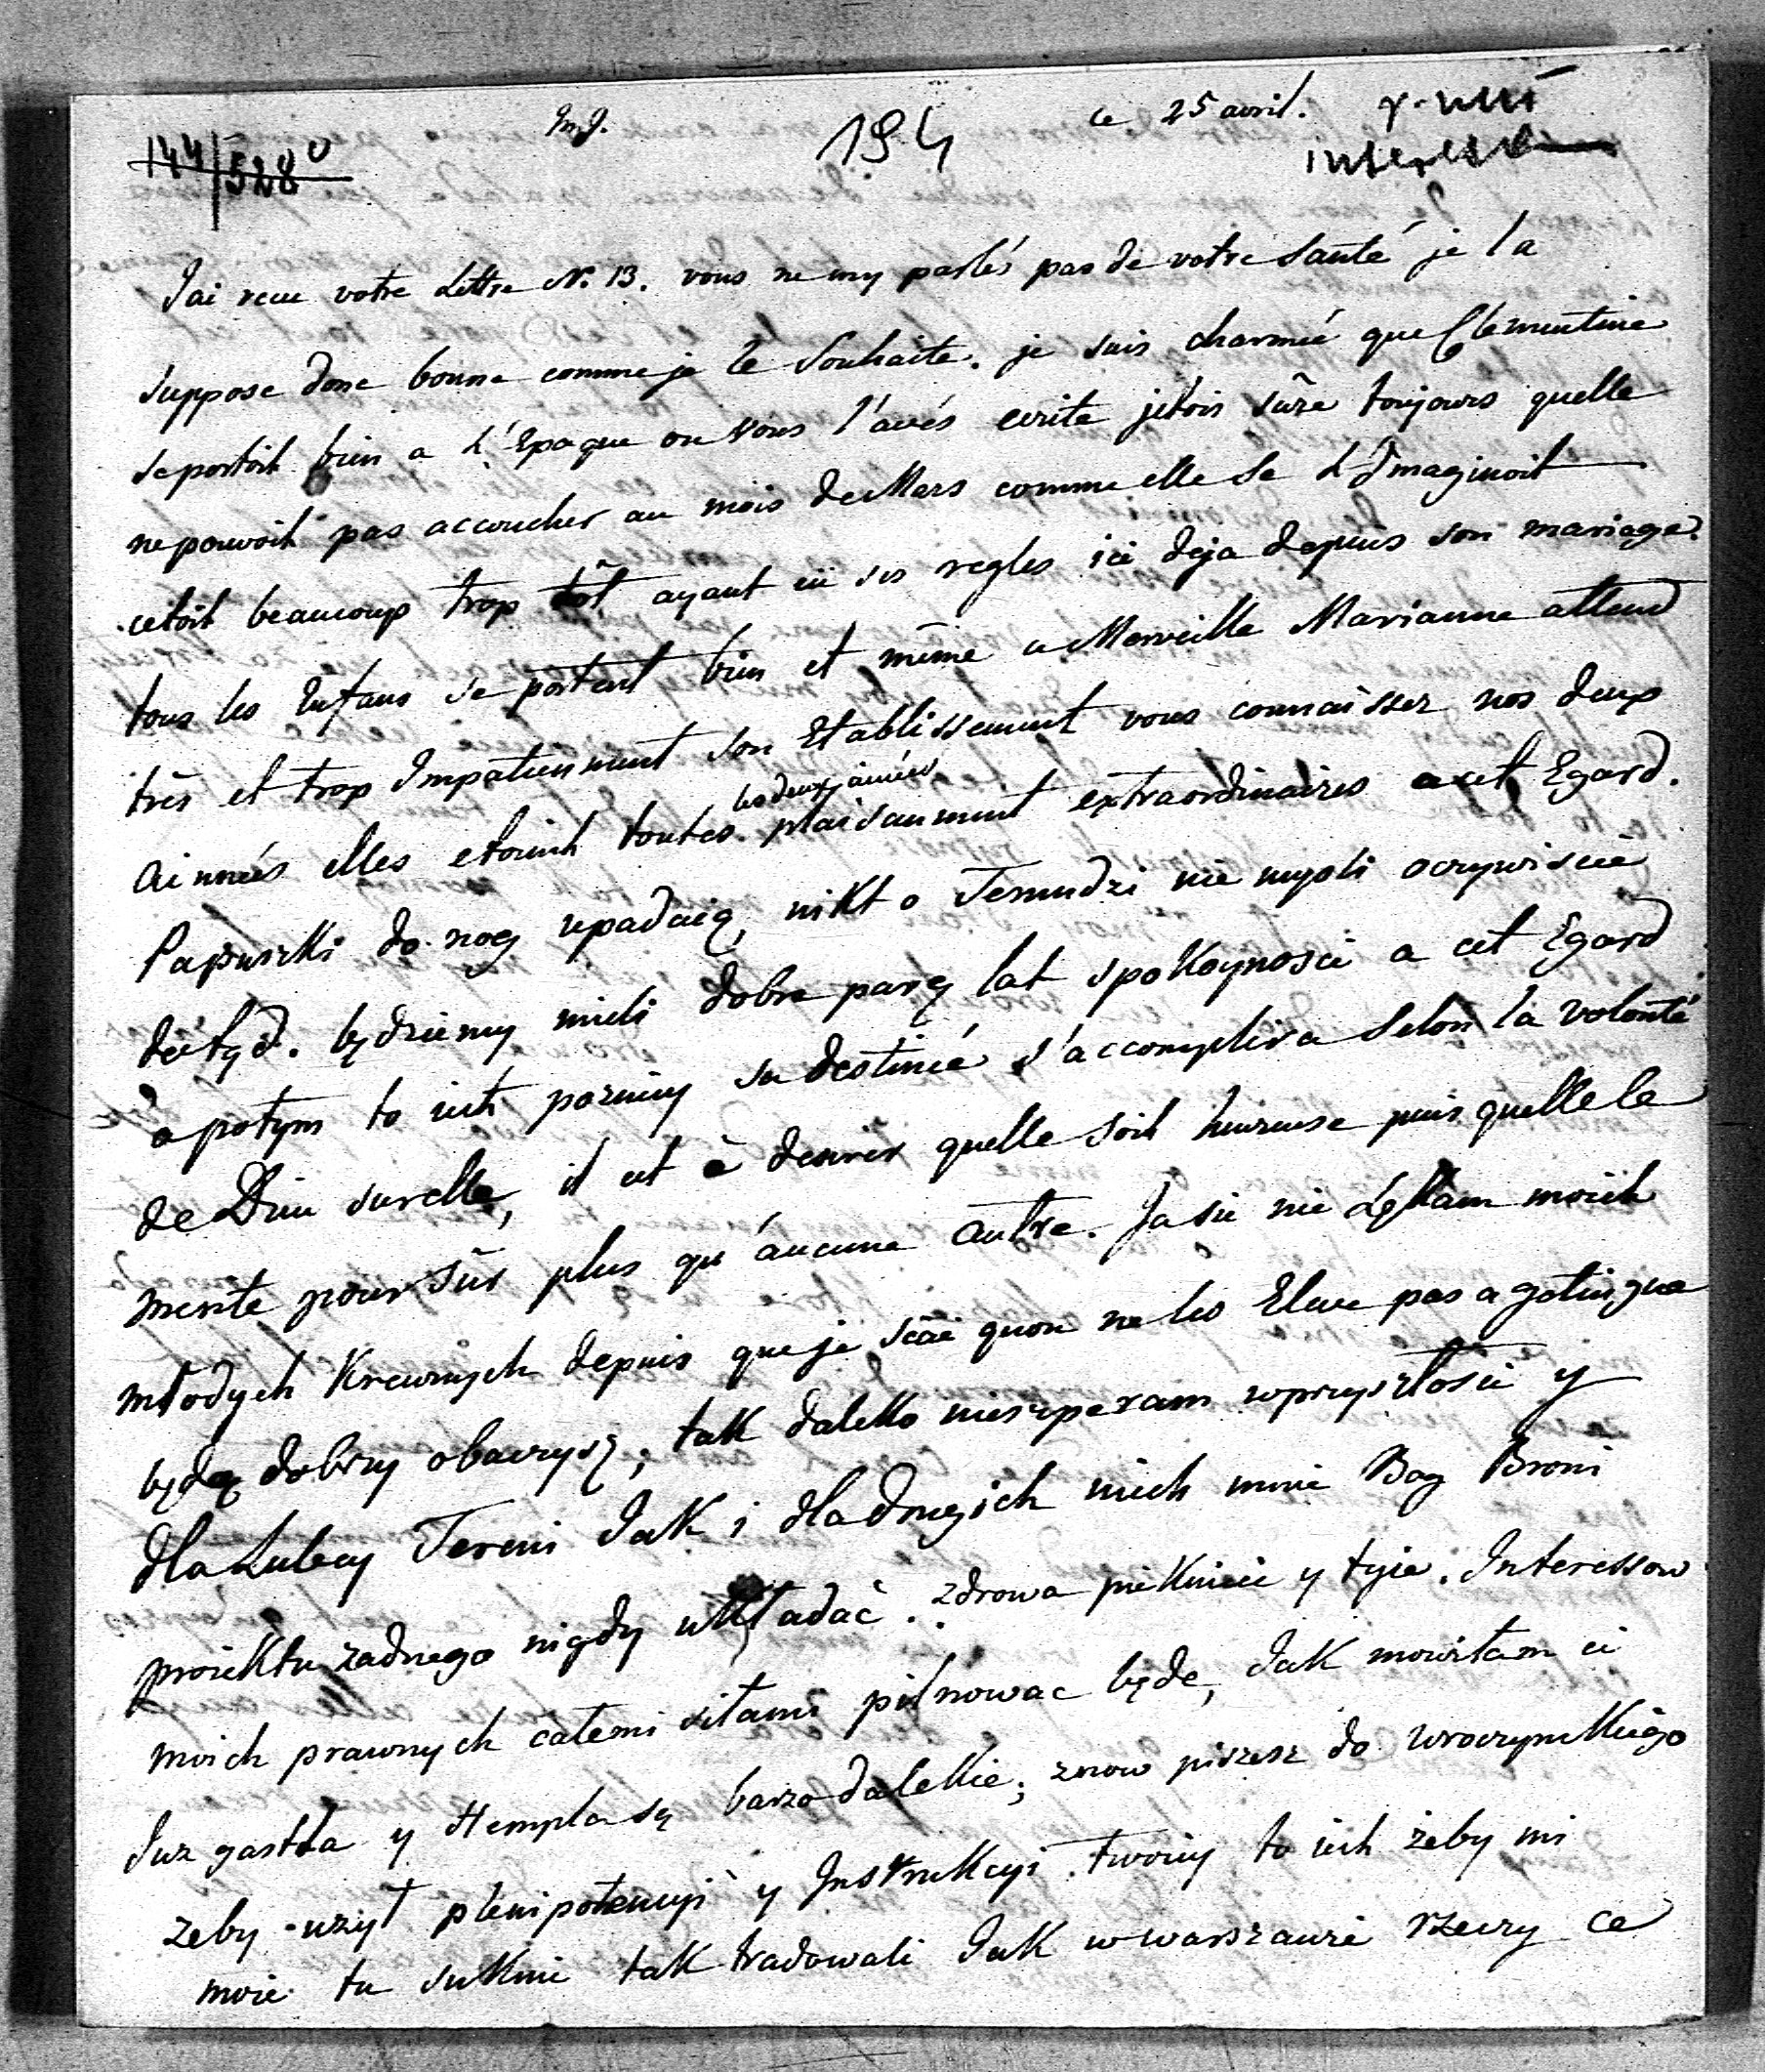 144/528
194
ce 25 avril.
Jai reçue votre Lettre N. 13. vous ne my parlés pas de votre santé je la
suppose donc bonne comme je le souhaite. je suis charmée que Clementine
se portoit bien a L'Epoque ou vous l'avés ecrite jetois sûre toujours quelle
ne pouvoit pas accoucher au mois de Mars comme elle se L'Imaginoit
cetoit beaucoup trop tôt ayant eü ses regles ici deja depuis son mariage.
tous les Enfans se portent bien et même a Merveille Marianne attend
très et trop Impatienment son Etablissement vous connaissez nos deux
ainnées elles etoient toutes les deux ainées plaisanment extraordinaires a cet Egard.
Papuszki do nog upadaią, nikt o Tenudzi nie mysli oczywiscie
będziemy mieli dobre parę lat spokoynosci a cet Egard
a potym to iest pozniey sa destinée s'accomplira selon la volonté
de Dieu surelle, il est à desirer quelle soit heureuse puis quelle le
merite pour sûr plus qu'aucune autre. Ja sie nie Lękam moich
młodych Krewnych depuis que je sçai quon ne les Eleve pas a gotingue
będą dobrzy obaczysz, tak daleko nieszperam wprzyszłosci y
dla Lubey Tereni Jak i dla drugich niech mnie Bog Broni
proiektu zadnego nigdy układać. zdrowa pieknieie y tyie. Interessow
moich prawnych całemi siłami pilnowac będe, Jak mowiłam ci
Juz gastła y Hempla są barzo dalekie; znow piszesz do wroczynskiego
zeby uzył plenipotencyi y Instrukcyi twoiey to iest żeby mi
moie tu suknie tak tradowali Jak w warszawie rzeczy ce